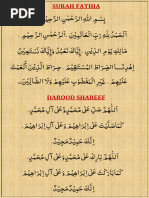 SURAH FATIHA
بِسْمِ اللَّهِ الرَّحْمَٰنِ الرَّحِيمِ
الْحَمْدُ لِلَّهِ رَبِّ الْعَالَمِينَ ۔ الرَّحْمَٰنِ الرَّحِيمِ ۔
مَالِكِ يَوْمِ الدِّينِ ۔ إِيَّاكَ نَعْبُدُ وَإِيَّاكَ نَسْتَعِينُ ۔
اهْدِنَا الصِّرَاطَ الْمُسْتَقِيمَ ۔ صِرَاطَ الَّذِينَ أَنْعَمْتَ
عَلَيْهِمْ ۔ غَيْرِ الْمَغْضُوبِ عَلَيْهِمْ وَلَا الضَّالِّينَ ۔
DAROOD SHAREEF
اَللّٰهُمَّ صَلِّ عَلَى مُحَمَّدٍ وَعَلَى آلِ مُحَمَّدٍ،
كَمَا صَلَّيْتَ عَلَى إِبْرَاهِيمَ وَعَلَى آلِ إِبْرَاهِيمَ،
إِنَّكَ حَمِيدٌ مَجِيدٌ
اَللّٰهُمَّ بَارِكْ عَلَى مُحَمَّدٍ، وَعَلَى آلِ مُحَمَّدٍ،
كَمَا بَارَكْتَ عَلَى إِبْرَاهِيمَ، وَعَلَى آلِ إِبْرَاهِيمَ،
إِنَّكَ حَمِيدٌ مَجِيدٌ